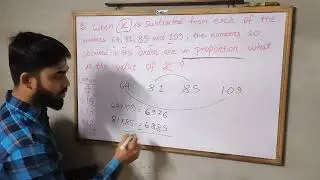 Q. When x is subtracted from each of the
numbers 64, 81, 85 and 109, the numbers so
obtained in this order, are in proportion. What
is the value of x?
64 81 85 109
64×109 = 6976
81×85 = 6885